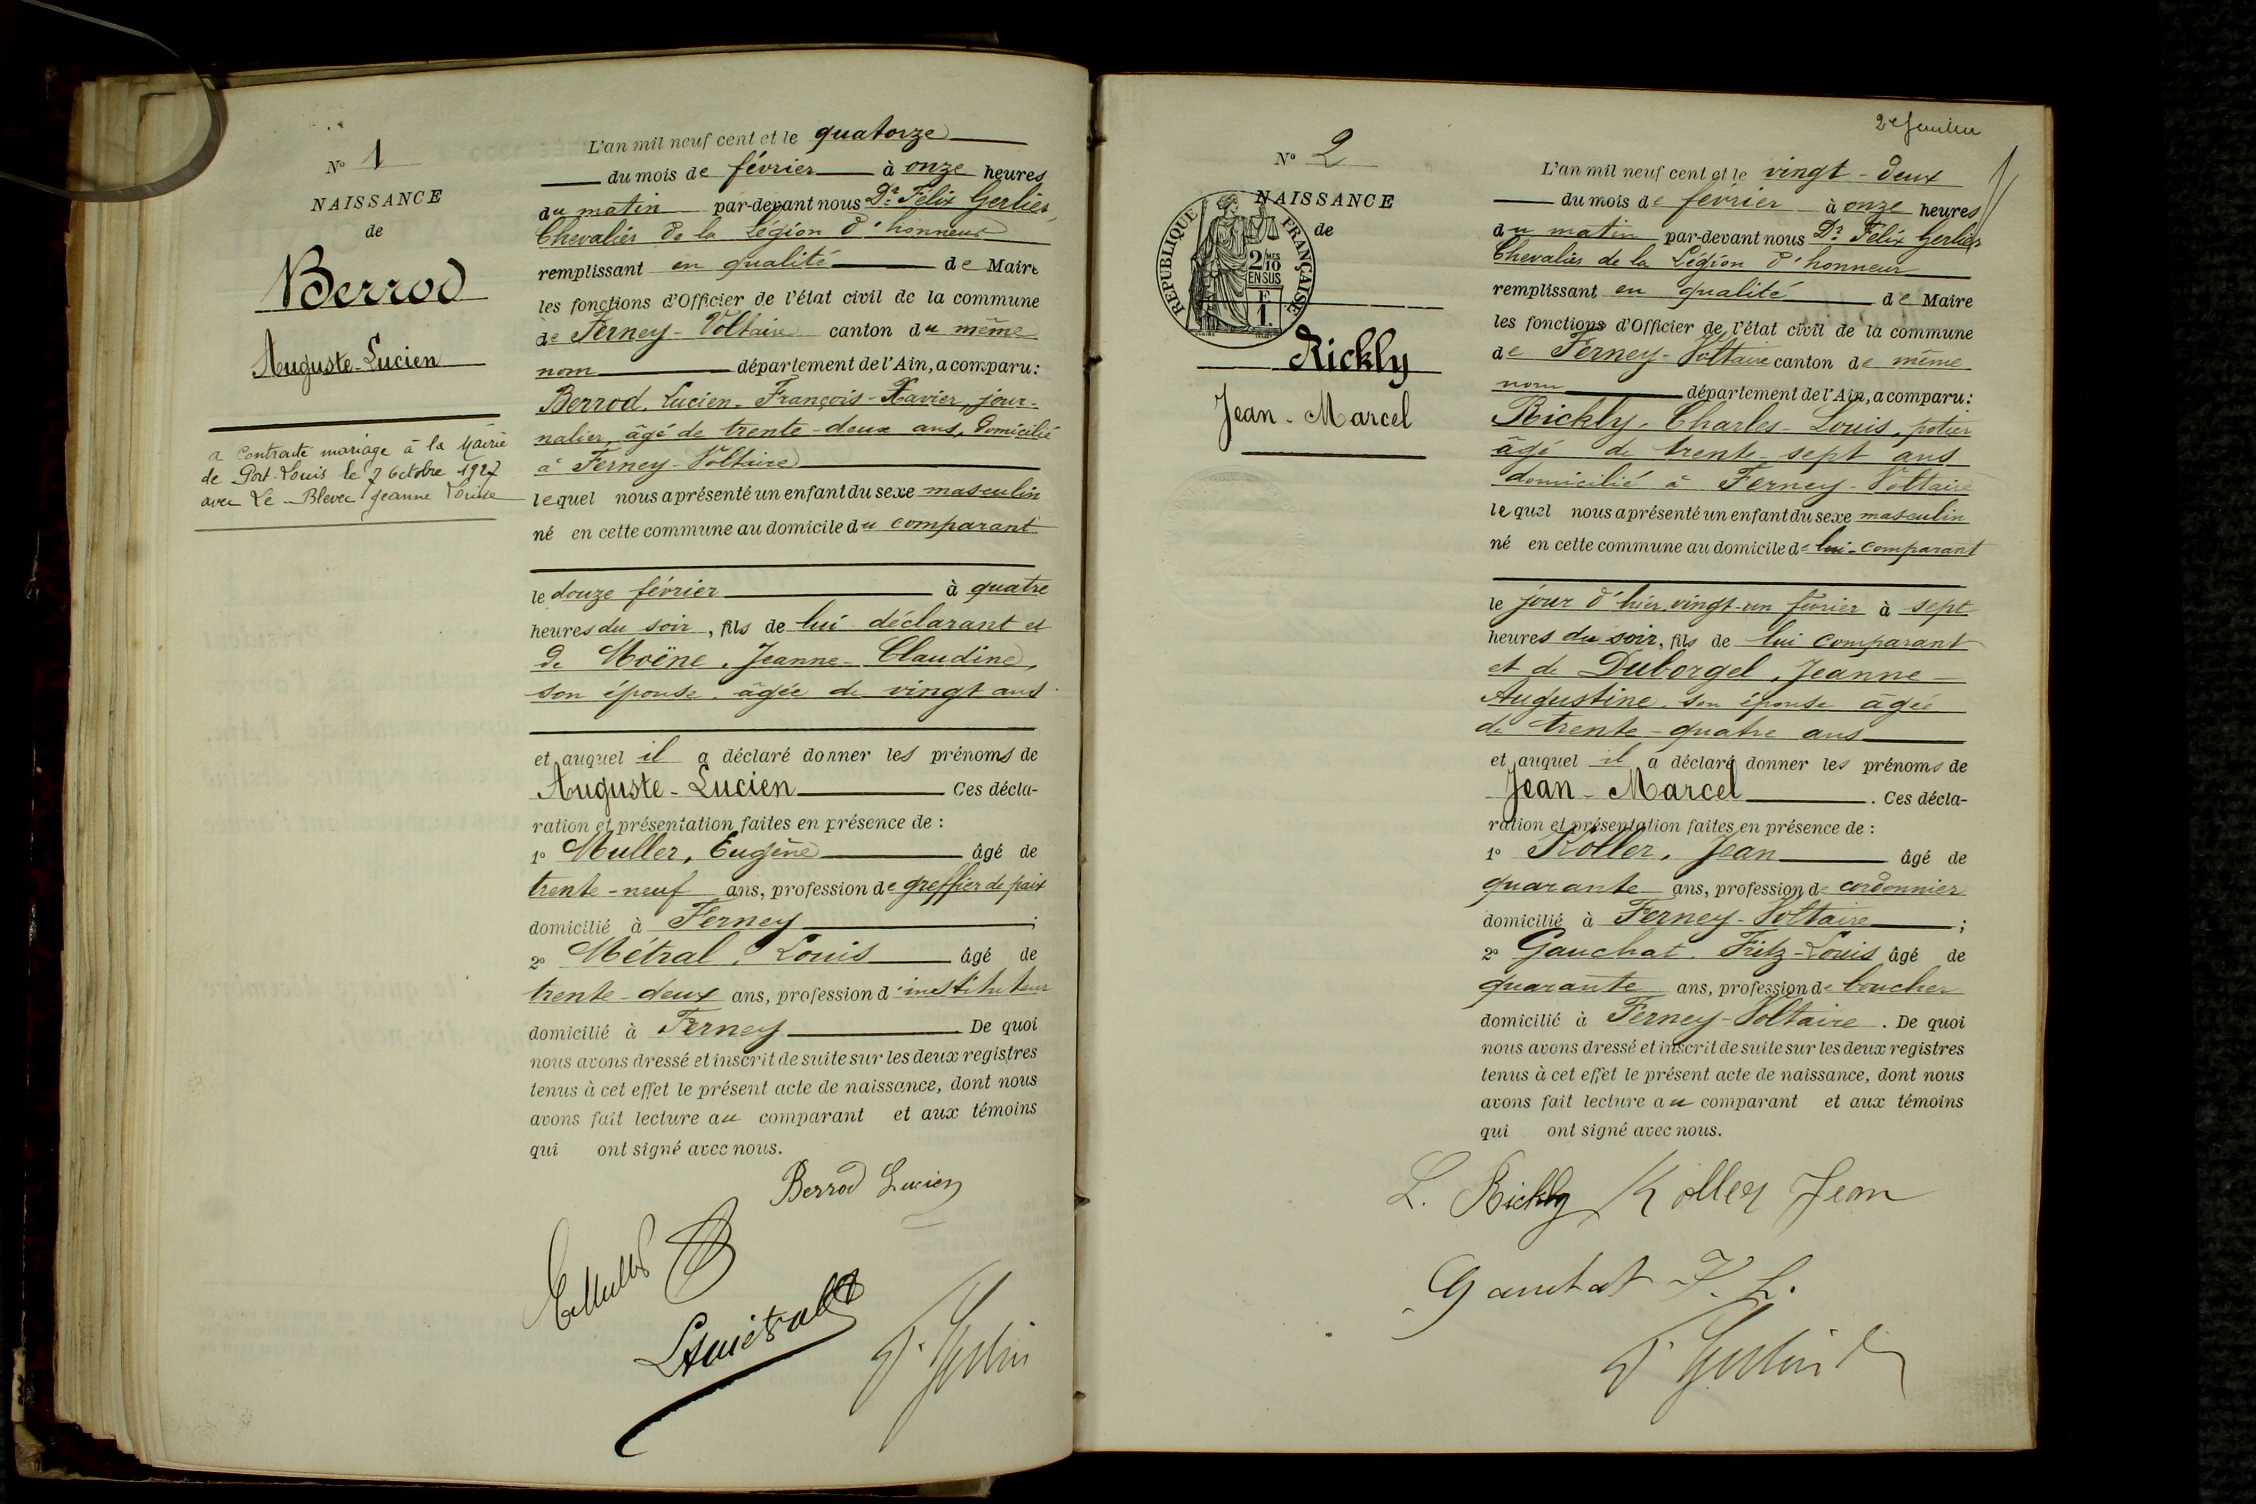 N° 1
NAISSANCE
de
Berrod
Auguste-Lucien
a contracté mariage à la Mairie
de Port-Louis le 7 Octobre 1927
avec Le Blevec Jeanne Louise
L'an mil neuf cent et le quatorze
du mois de février à onze heures
du matin par-devant nous Dr. Félix Gerlier,
Chevalier de la Légion d'honneur
remplissant en qualité de Maire
les fonctions d'Officier de l'état civil de la commune
de Ferney-Voltaire canton du même
nom département de l'Ain, a comparu:
Berrod, Lucien-François-Xavier, jour-
nalier, âgé de trente-deux ans, domicilié
à Ferney-Voltaire
lequel nous a présenté un enfant du sexe masculin
né en cette commune au domicile du comparant
le douze février à quatre
heures du soir, fils de lui déclarant et
de Moëne, Jeanne-Claudine,
son épouse, âgée de vingt ans
et auquel il a déclaré donner les prénoms de
Auguste-Lucien Ces décla-
ration et présentation faites en présence de :
1° Muller, Eugène âgé de
trente-neuf ans, profession de greffier de paix
domicilié à Ferney ;
2° Métral, Louis âgé de
trente-deux ans, profession d'instituteur
domicilié à Ferney De quoi
nous avons dressé et inscrit de suite sur les deux registres
tenus à cet effet le présent acte de naissance, dont nous
avons fait lecture au comparant et aux témoins
qui ont signé avec nous.
Berrod Lucien
E Muller
L Métral
Dr Gerlier
2e feuillet
N° 2
NAISSANCE
de
REPUBLIQUE FRANÇAISE
2/10 MES
EN SUS
F
1.
Rickly
Jean-Marcel
L'an mil neuf cent et le vingt-deux
du mois de février à onze heures
du matin par-devant nous Dr. Félix Gerlier
Chevalier de la Légion d'honneur
remplissant en qualité de Maire
les fonctions d'Officier de l'état civil de la commune
de Ferney-Voltaire canton de même
nom département de l'Ain, a comparu:
Rickly, Charles-Louis, potier
âgé de trente-sept ans
domicilié à Ferney-Voltaire
lequel nous a présenté un enfant du sexe masculin
né en cette commune au domicile de lui-comparant
le jour d'hier vingt-un février à sept
heures du soir, fils de lui comparant
et de Duborgel, Jeanne-
Augustine, son épouse âgée
de trente-quatre ans
et auquel il a déclaré donner les prénoms de
Jean-Marcel. Ces décla-
ration et présentation faites en présence de :
1° Koller, Jean âgé de
quarante ans, profession de cordonnier
domicilié à Ferney-Voltaire ;
2° Gauchat, Fritz-Louis âgé de
quarante ans, profession de boucher
domicilié à Ferney-Voltaire. De quoi
nous avons dressé et inscrit de suite sur les deux registres
tenus à cet effet le présent acte de naissance, dont nous
avons fait lecture au comparant et aux témoins
qui ont signé avec nous.
L. Rickly Koller Jean
Gauchat F. L.
Dr Gerlier